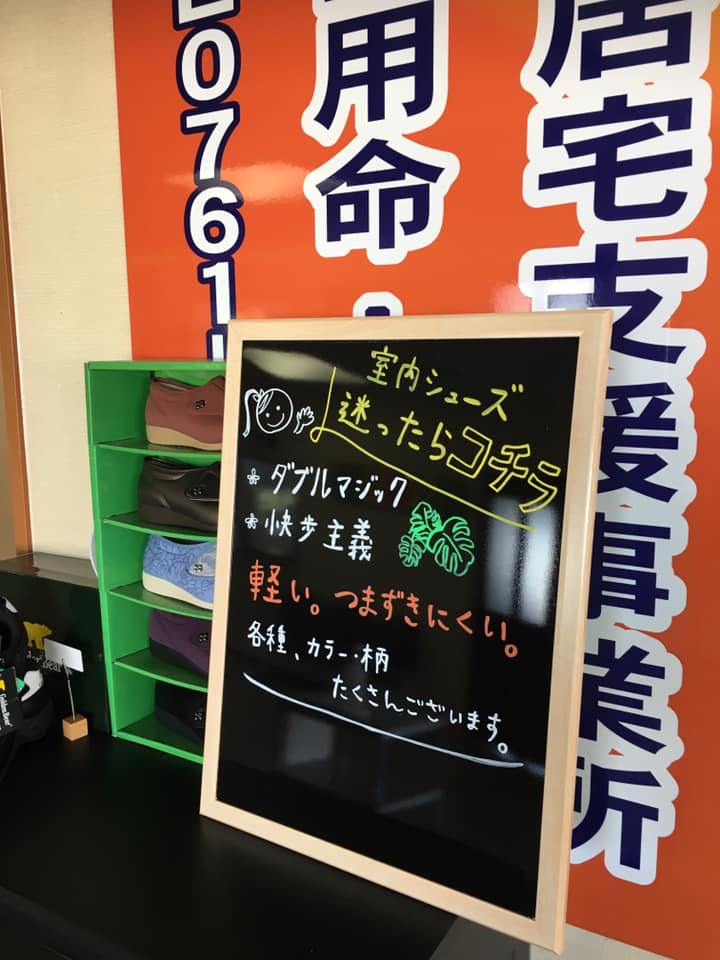 居宅支援事業所
用命
0761
室内シューズ
迷ったらコチラ
* ダブルマジック
* 快歩主義
軽い。つまずきにくい。
各種、カラー・柄
たくさんございます。